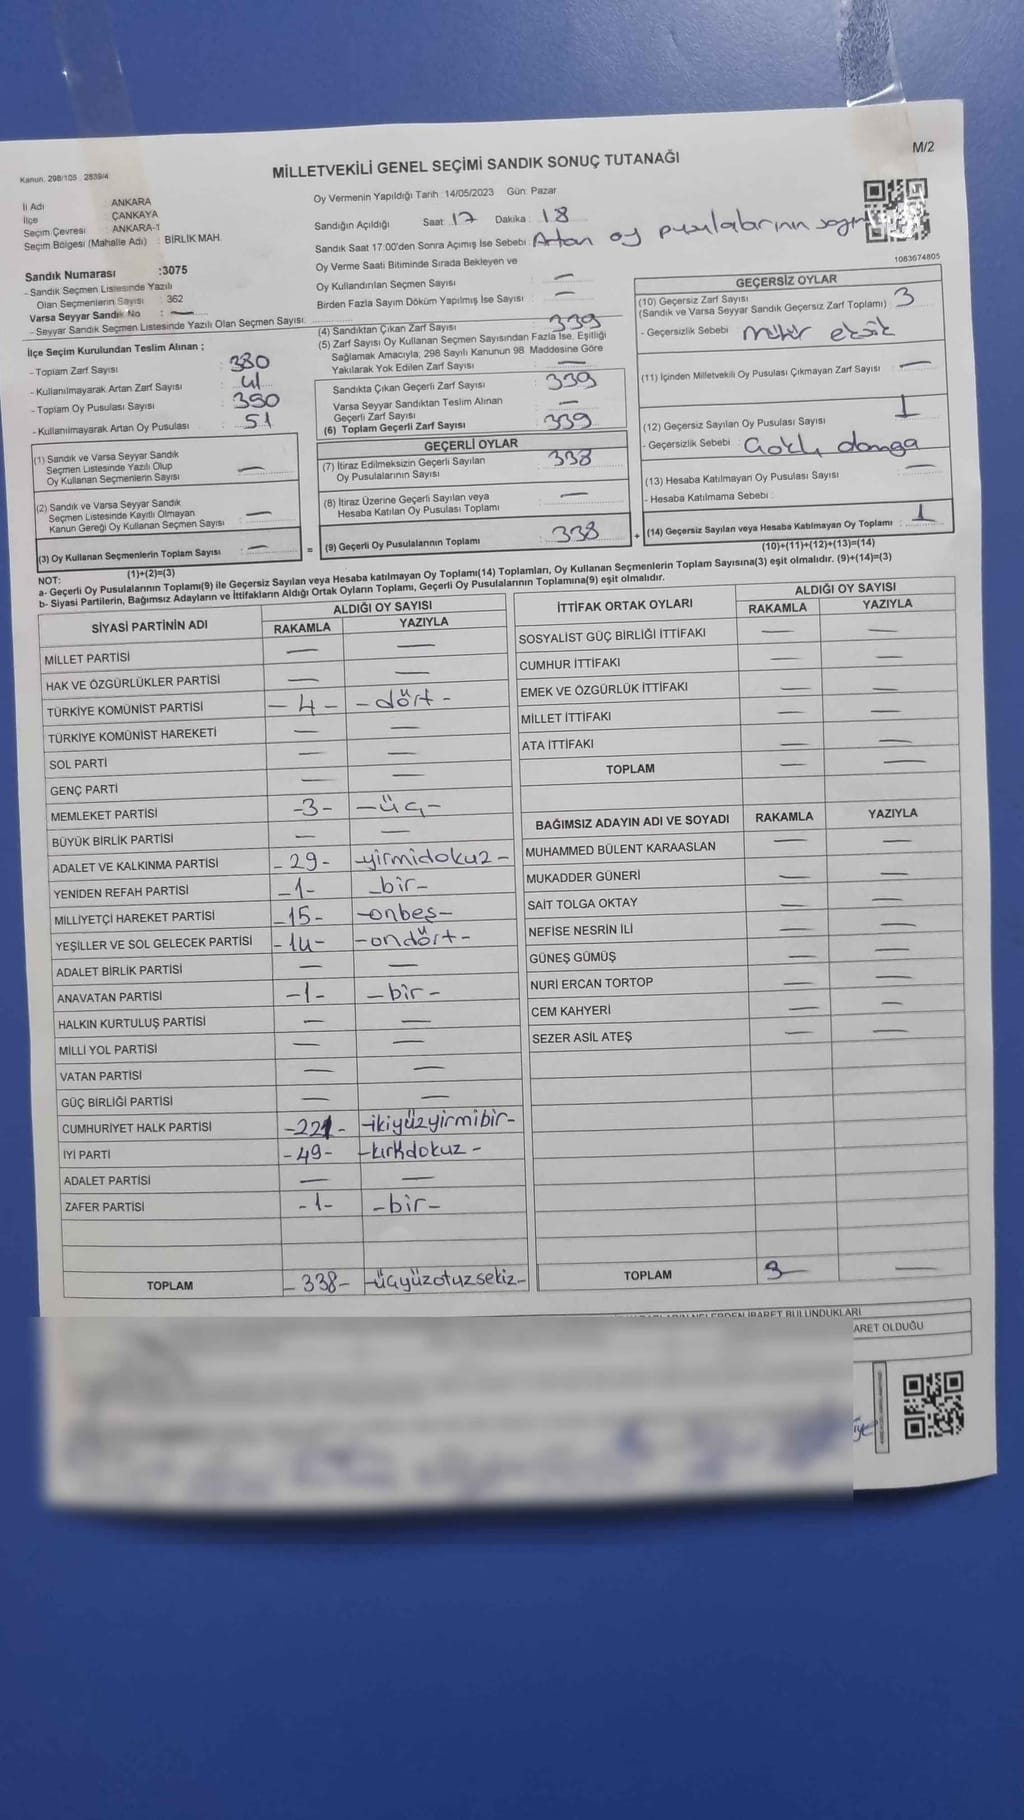 Kanun. 298/105 . 2839/4
MİLLETVEKİLİ GENEL SEÇİMİ SANDIK SONUÇ TUTANAĞI
M/2
İl Adı : ANKARA
İlçe : ÇANKAYA
Seçim Çevresi : ANKARA-1
Seçim Bölgesi (Mahalle Adı) : BİRLİK MAH.
Oy Vermenin Yapıldığı Tarih : 14/05/2023 Gün: Pazar
Sandığın Açıldığı Saat: 17 Dakika : 18
Sandık Saat 17:00'den Sonra Açımış İse Sebebi : Artan oy pusulalarının
Oy Verme Saati Bitiminde Sırada Bekleyen ve
Oy Kullandırılan Seçmen Sayısı —
Birden Fazla Sayım Döküm Yapılmış İse Sayısı —
1063674805
Sandık Numarası :3075
- Sandık Seçmen Listesinde Yazılı
Olan Seçmenlerin Sayısı : 362
Varsa Seyyar Sandık No : —
- Seyyar Sandık Seçmen Listesinde Yazılı Olan Seçmen Sayısı:
İlçe Seçim Kurulundan Teslim Alınan ;
- Toplam Zarf Sayısı : 380
- Kullanılmayarak Artan Zarf Sayısı : 41
- Toplam Oy Pusulası Sayısı : 390
- Kullanılmayarak Artan Oy Pusulası : 51
(1) Sandık ve Varsa Seyyar Sandık
Seçmen Listesinde Yazılı Olup
Oy Kullanan Seçmenlerin Sayısı : —
(2) Sandık ve Varsa Seyyar Sandık
Seçmen Listesinde Kayıtlı Olmayan
Kanun Gereği Oy Kullanan Seçmen Sayısı : —
(3) Oy Kullanan Seçmenlerin Toplam Sayısı : —
(1)+(2)=(3)
(4) Sandıktan Çıkan Zarf Sayısı : 339
(5) Zarf Sayısı Oy Kullanan Seçmen Sayısından Fazla İse, Eşitliği
Sağlamak Amacıyla, 298 Sayılı Kanunun 98. Maddesine Göre
Yakılarak Yok Edilen Zarf Sayısı : —
Sandıkta Çıkan Geçerli Zarf Sayısı : 339
Varsa Seyyar Sandıktan Teslim Alınan
Geçerli Zarf Sayısı : —
(6) Toplam Geçerli Zarf Sayısı : 339
GEÇERLİ OYLAR
(7) İtiraz Edilmeksizin Geçerli Sayılan
Oy Pusulalarının Sayısı : 338
(8) İtiraz Üzerine Geçerli Sayılan veya
Hesaba Katılan Oy Pusulası Toplamı : —
= (9) Geçerli Oy Pusulalarının Toplamı : 338
GEÇERSİZ OYLAR
(10) Geçersiz Zarf Sayısı
(Sandık ve Varsa Seyyar Sandık Geçersiz Zarf Toplamı) : 3
- Geçersizlik Sebebi : mühür eksik
(11) İçinden Milletvekili Oy Pusulası Çıkmayan Zarf Sayısı : —
(12) Geçersiz Sayılan Oy Pusulası Sayısı : 1
- Geçersizlik Sebebi : damga
(13) Hesaba Katılmayan Oy Pusulası Sayısı : —
- Hesaba Katılmama Sebebi :
+ (14) Geçersiz Sayılan veya Hesaba Katılmayan Oy Toplamı : 1
(10)+(11)+(12)+(13)=(14)
NOT:
a- Geçerli Oy Pusulalarının Toplamı(9) ile Geçersiz Sayılan veya Hesaba katılmayan Oy Toplamı(14) Toplamları, Oy Kullanan Seçmenlerin Toplam Sayısına(3) eşit olmalıdır. (9)+(14)=(3)
b- Siyasi Partilerin, Bağımsız Adayların ve İttifakların Aldığı Ortak Oyların Toplamı, Geçerli Oy Pusulalarının Toplamına(9) eşit olmalıdır.
SİYASİ PARTİNİN ADI ALDIĞI OY SAYISI
RAKAMLA YAZIYLA
MİLLET PARTİSİ — —
HAK VE ÖZGÜRLÜKLER PARTİSİ — —
TÜRKİYE KOMÜNİST PARTİSİ - 4 - - dört -
TÜRKİYE KOMÜNİST HAREKETİ — —
SOL PARTİ — —
GENÇ PARTİ — —
MEMLEKET PARTİSİ -3- -üç-
BÜYÜK BİRLİK PARTİSİ — —
ADALET VE KALKINMA PARTİSİ - 29 - -yirmidokuz-
YENİDEN REFAH PARTİSİ -1- -bir-
MİLLİYETÇİ HAREKET PARTİSİ -15- -onbeş-
YEŞİLLER VE SOL GELECEK PARTİSİ -14- -ondört-
ADALET BİRLİK PARTİSİ — —
ANAVATAN PARTİSİ -1- -bir-
HALKIN KURTULUŞ PARTİSİ — —
MİLLİ YOL PARTİSİ — —
VATAN PARTİSİ — —
GÜÇ BİRLİĞİ PARTİSİ — —
CUMHURİYET HALK PARTİSİ -221- -ikiyüzyirmibir-
İYİ PARTİ -49- -kırkdokuz-
ADALET PARTİSİ — —
ZAFER PARTİSİ -1- -bir-
TOPLAM -338- -üçyüzotuzsekiz-
İTTİFAK ORTAK OYLARI ALDIĞI OY SAYISI
RAKAMLA YAZIYLA
SOSYALİST GÜÇ BİRLİĞİ İTTİFAKI — —
CUMHUR İTTİFAKI — —
EMEK VE ÖZGÜRLÜK İTTİFAKI — —
MİLLET İTTİFAKI — —
ATA İTTİFAKI — —
TOPLAM — —
BAĞIMSIZ ADAYIN ADI VE SOYADI RAKAMLA YAZIYLA
MUHAMMED BÜLENT KARAASLAN — —
MUKADDER GÜNERİ — —
SAİT TOLGA OKTAY — —
NEFİSE NESRİN İLİ — —
GÜNEŞ GÜMÜŞ — —
NURİ ERCAN TORTOP — —
CEM KAHYERİ — —
SEZER ASİL ATEŞ — —
TOPLAM —
NELERDEN İBARET BULUNDUKLARI
ARET OLDUĞU